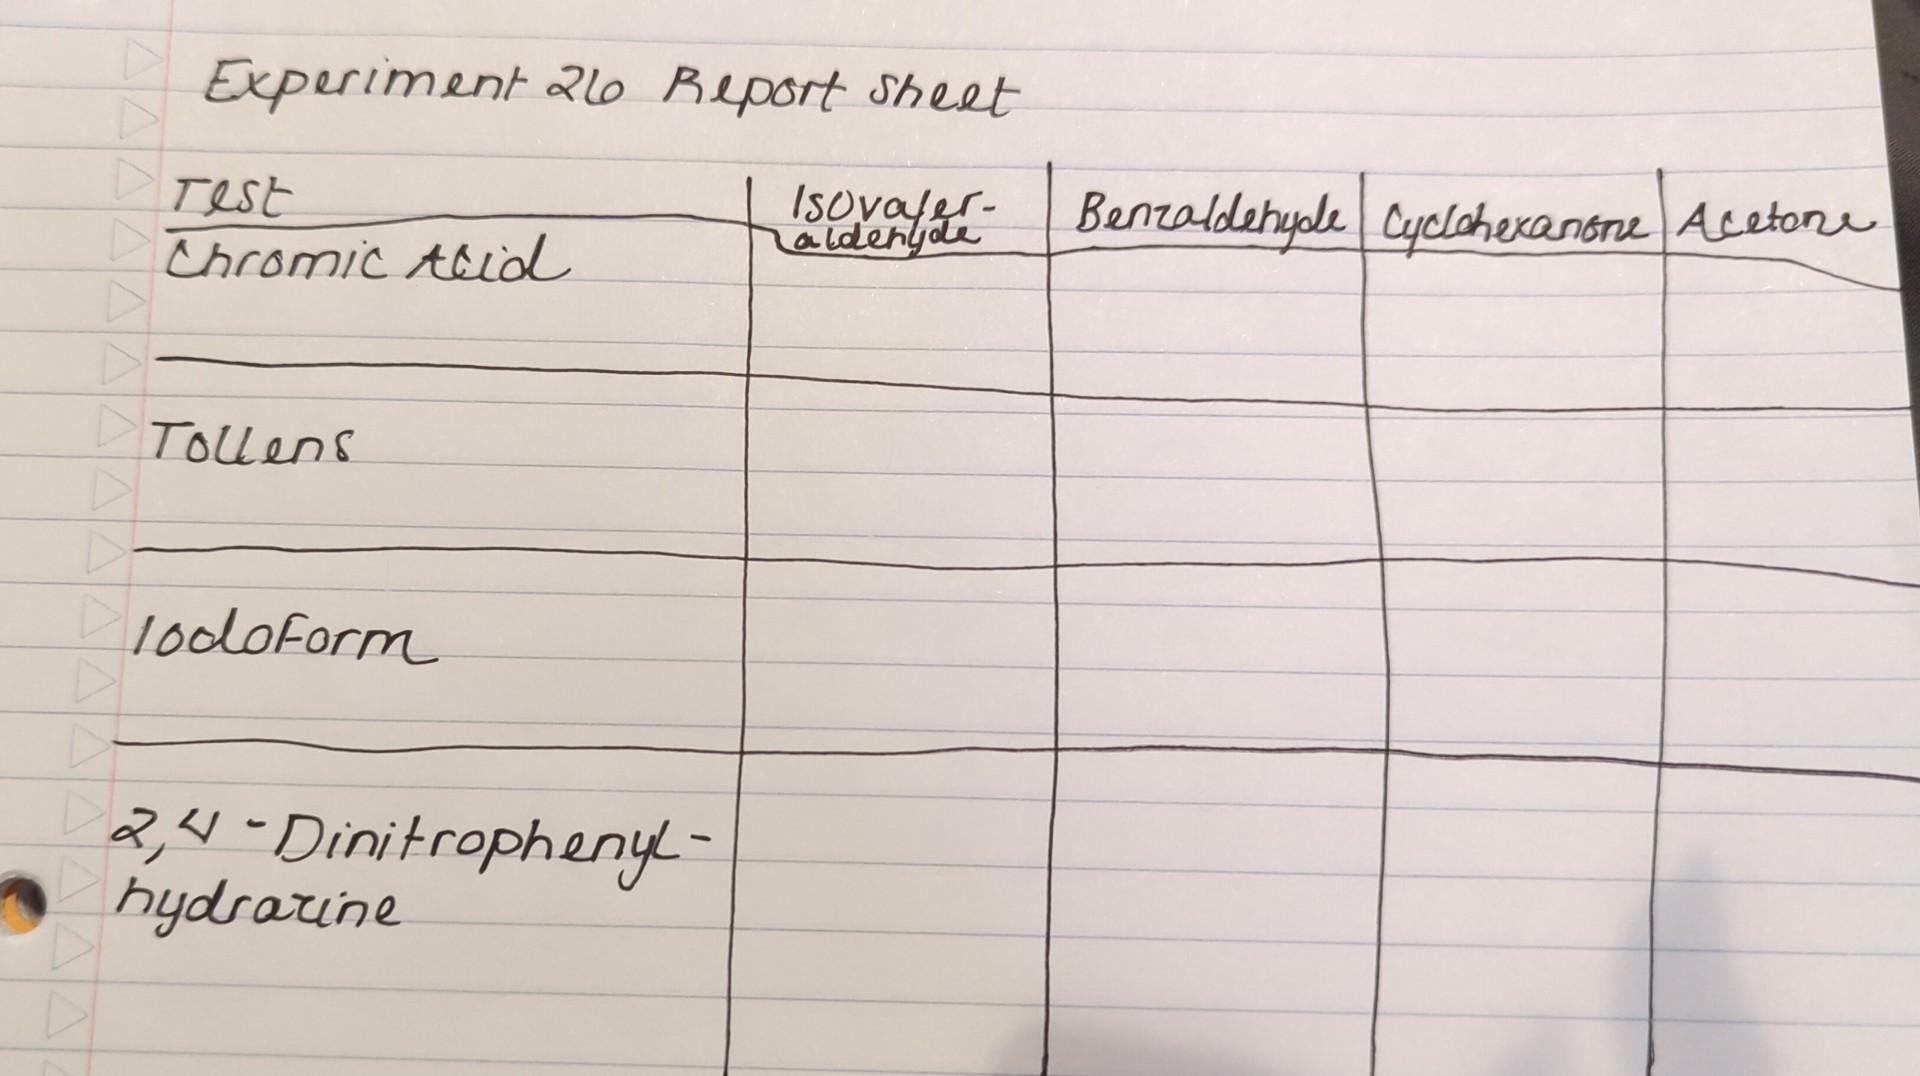 Experiment 26 Report Sheet
Test
Isovaler-
aldehyde
Benzaldehyde
Cyclohexanone
Acetone
Chromic Acid
Tollens
Iodoform
2,4-Dinitrophenyl-
hydrazine